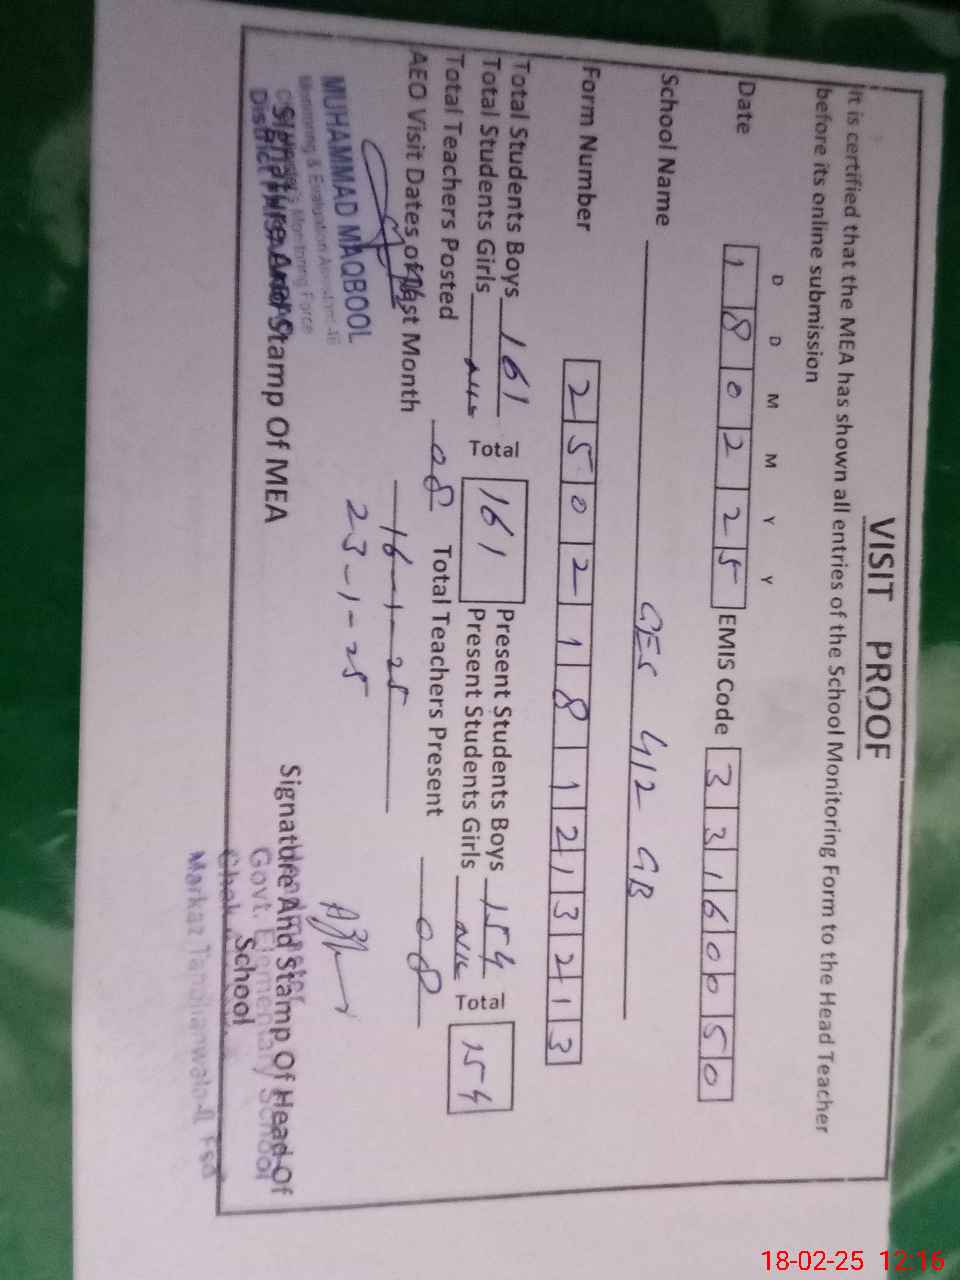 VISIT PROOF
It is certified that the MEA has shown all entries of the School Monitoring Form to the Head Teacher
before its online submission
D D M M Y Y
Date 1 8 0 2 2 5 EMIS Code 3 3 1 6 0 0 5 0
School Name GES 412 GB
Form Number 2 5 0 2 1 8 1 2 1 3 2 1 3
Total Students Boys 161 Total 161 Present Students Boys 154 Total 154
Total Students Girls Nil Present Students Girls Nil
Total Teachers Posted 08 Total Teachers Present 08
AEO Visit Dates of Past Month 16-1-25
23-1-25
MUHAMMAD MAQBOOL
Monitoring & Evaluation
Monitoring Force
District
Signature And Stamp Of MEA
Signature And Stamp Of Head Of
School
Govt. Elementary School
Chak
Markaz Tandlianwala-II, Fsd
18-02-25 12:16